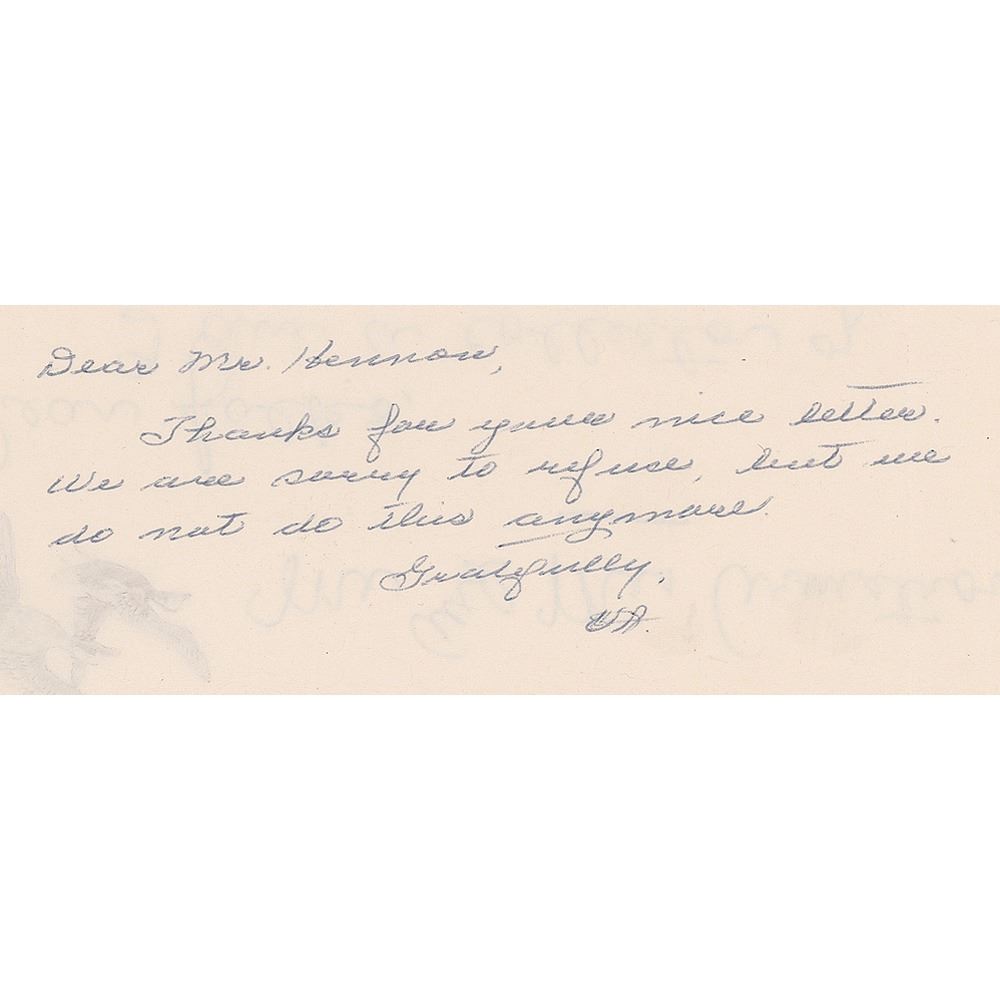 Dear Mr. Kennow,
Thanks for your nice letter.
We are sorry to refuse, but we
do not do this anymore.
Gratefully,
VA.